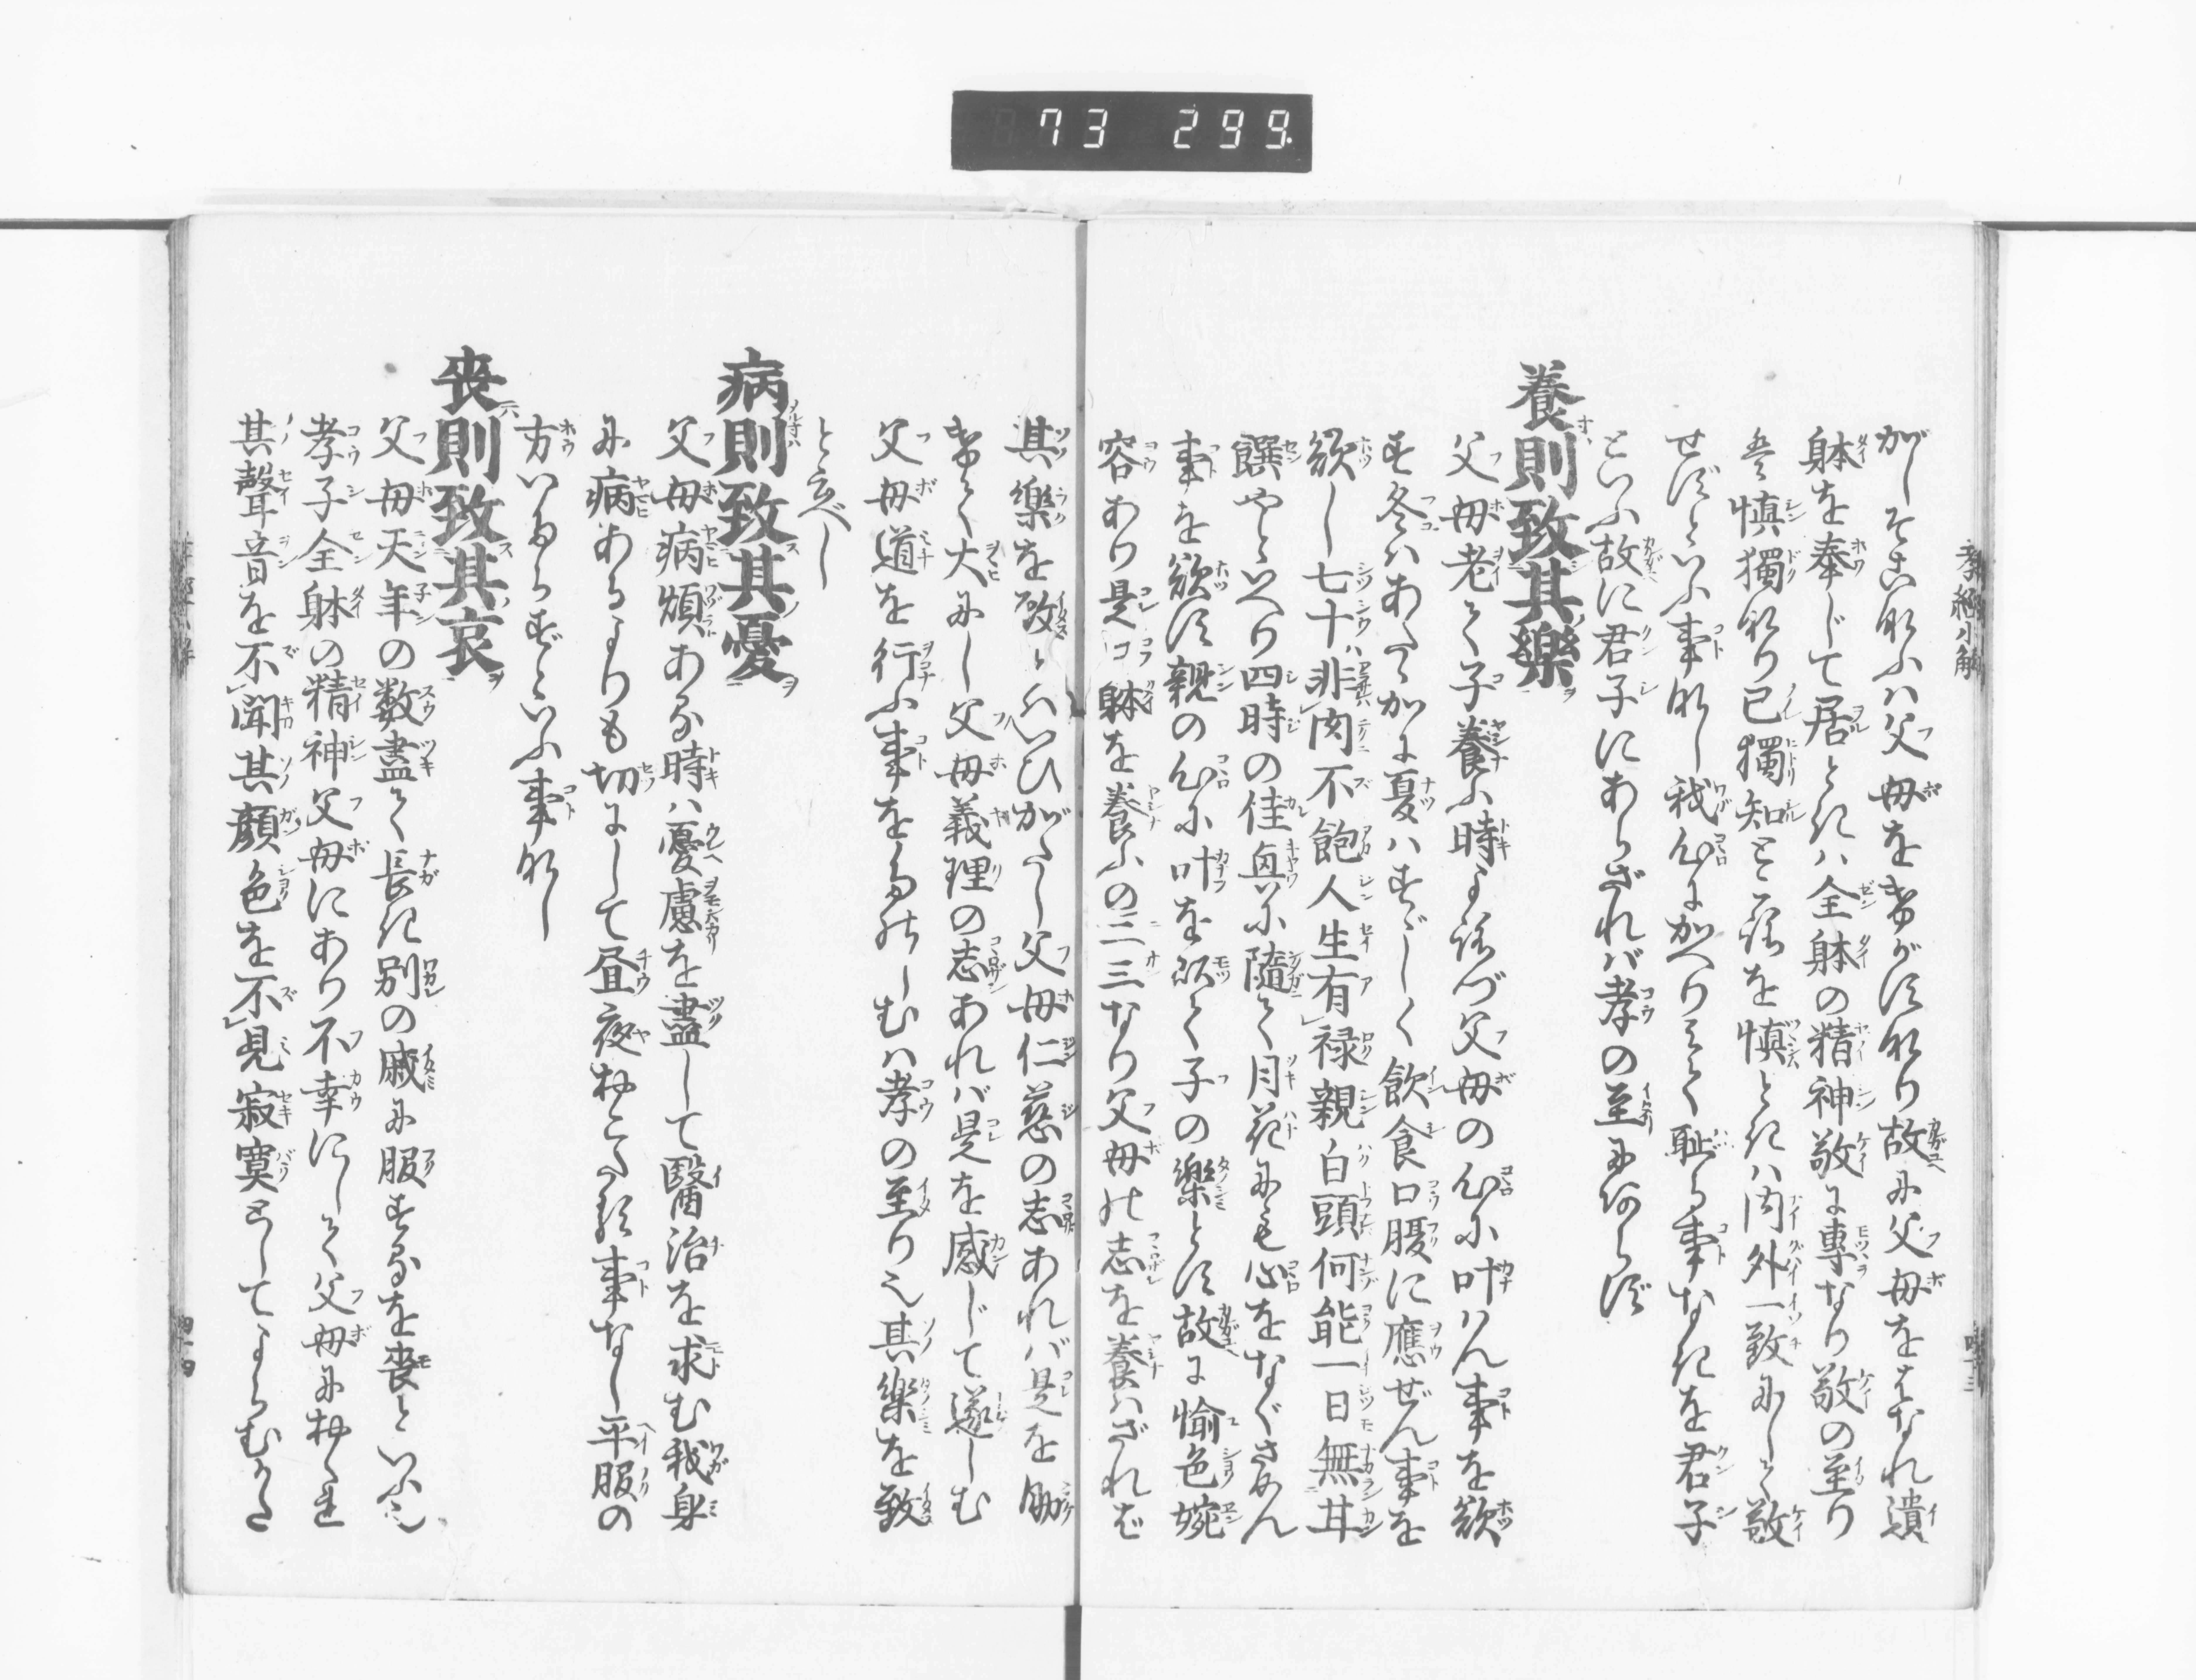 73 299.
孝經小解
がしそこなふハ父母をけがす也故に父母をはなれ遺
躰を奉じて居ときハ全躰の精神敬に專なり敬の至り
慎獨なり已獨知と云を慎ときハ内外一致にして敬
せずといふ事なし我心にかへりみて恥る事なきを君子
といふ故に君子にあらざれバ孝の至にあらず
養則致其樂
父母老て子養ふ時よろづ父母の心に叶ハん事を欲
す冬ハあたゝかに夏ハすゞしく飲食口腹に應ぜん事を
欲し七十非肉不飽人生有禄親白頭何能一日無甘
饌やといへり四時の佳興に隨て月花にも心をなぐさめん
事を欲す親の心に叶を以て子の樂とす故に愉色婉
容あり是口躰を養ふの二三なり父母の志を養ハざれば
其樂を致すとハいひがたし父母仁慈の志あれバ是を助
けて大にし父母義理の志あれバ是を感じて遂しむ
父母道を行ふ事をたのしむハ孝の至り也其樂を致
と云べし
病則致其憂
父母病煩ある時ハ憂慮を盡して醫治を求む我身
に病あるよりも切にして昼夜おこたる事なし平服の
方いたらずといふ事なし
喪則致其哀
父母天年の数盡て長き別の戚に服するを喪といふ也
孝子全躰の精神父母にあり不幸にして父母におくれ
其聲音を不聞其顔色を不見寂寞としてよらむかた